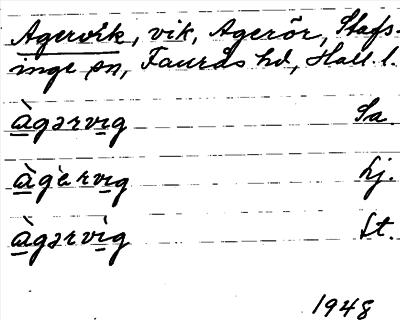 Agervik, vik, Agerör, Stafs-
inge sn, Faurås hd, Hall. l.
àgərvìg Sa.
àgèrvig Lj.
àgərvìg St.
1948